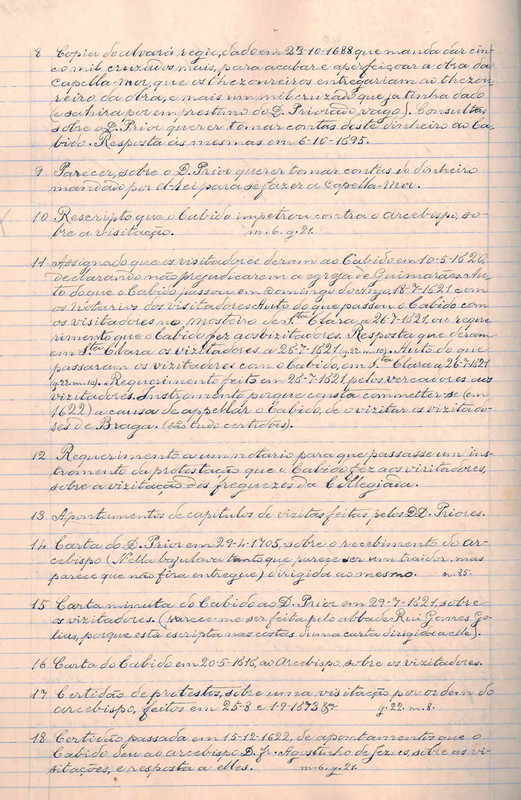 8 Copia do alvará regio, dado em 23-10-1688 que manda dar cin-
co mil cruzados mais, para acabar e aperfeiçoar a obra da
Capella-Mor, que os thezoureiros entregariam ao thezou-
reiro da obra, e mais um mil cruzado que já tinha dado
(e sahira por emprestimo do D. Priorado vago). Consultas
sobre o D. Prior querer tomar contas deste dinheiro ao Ca-
bido. Resposta ás mesmas em 6-10-1695.
9 Parecer, sobre o D. Prior querer tomar contas do dinheiro
mandado por El-hei para se fazer a Capella-Mor.
10 Rescripto que o Cabido impetrou contra o arcebispo, so-
bre a visitação. m. 6. g. 21.
11 Assignado que os visitadores deram ao Cabido em 10-5-1620,
declarando não prejudicarem a egreja de Guimarães. Au-
to do que o Cabido passou em Domingo do Anjo, 18-7-1621 com
os notarios dos visitadores. Auto do que passou o Cabido com
os visitadores no mosteiro de S.ta Clara a 26-7-1621, ou reque-
rimento que o Cabido fez aos vizitadores. Resposta que deram
em S.ta Clara os vizitadores a 26-7-1621 (g. 22. m. 19). Auto do que
passaram os vizitadores com o Cabido, em S.ta Clara a 26-7-1621
(g. 22. m. 19). Requerimento feito em 26-7-1621 pelos vereadores aos
vizitadores. Instrumento porque consta commetter-se (em
1622) a causa de appellar o Cabido, de o vizitar os vizitado-
res de Braga. (são tudo certidões).
12 Requerimento a um notario para que passasse um ins-
tromento da protestação que o Cabido fez aos vizitadores,
sobre a vizitação dos freguezes da Collegiada.
13 Apontamentos de capitulos de vizitas feitas pelos D.D. Priores.
14 Carta do D. Prior em 29-4-1705, sobre o recebimento do ar-
cebispo (Nella bajulava tanto que parece ser um traidor, mas
parece que não fôra entregue) dirigida ao mesmo. n. 25.
15 Carta minuta do Cabido ao D. Prior em 29-7-1621, sobre
os vizitadores. (parece-me ser feita pelo abbade Rui Gomes Go-
lias, porque está escripta nas costas d'uma carta dirigida a elle).
16 Carta do Cabido em 20-5-1616, ao Arcebispo, sobre os vizitadores.
17 Certidão de protestos, sobre uma visitação por ordem do
arcebispo, feitos em 25-8 e 1-9-1673 g. 22. m. 8.
18 Certidão passada em 15-12-1622, de apontamentos que o
Cabido deu ao arcebispo D. fr. Agostinho de Jezus, sobre as vi-
sitações, e resposta a elles. m. 6. g. 21.